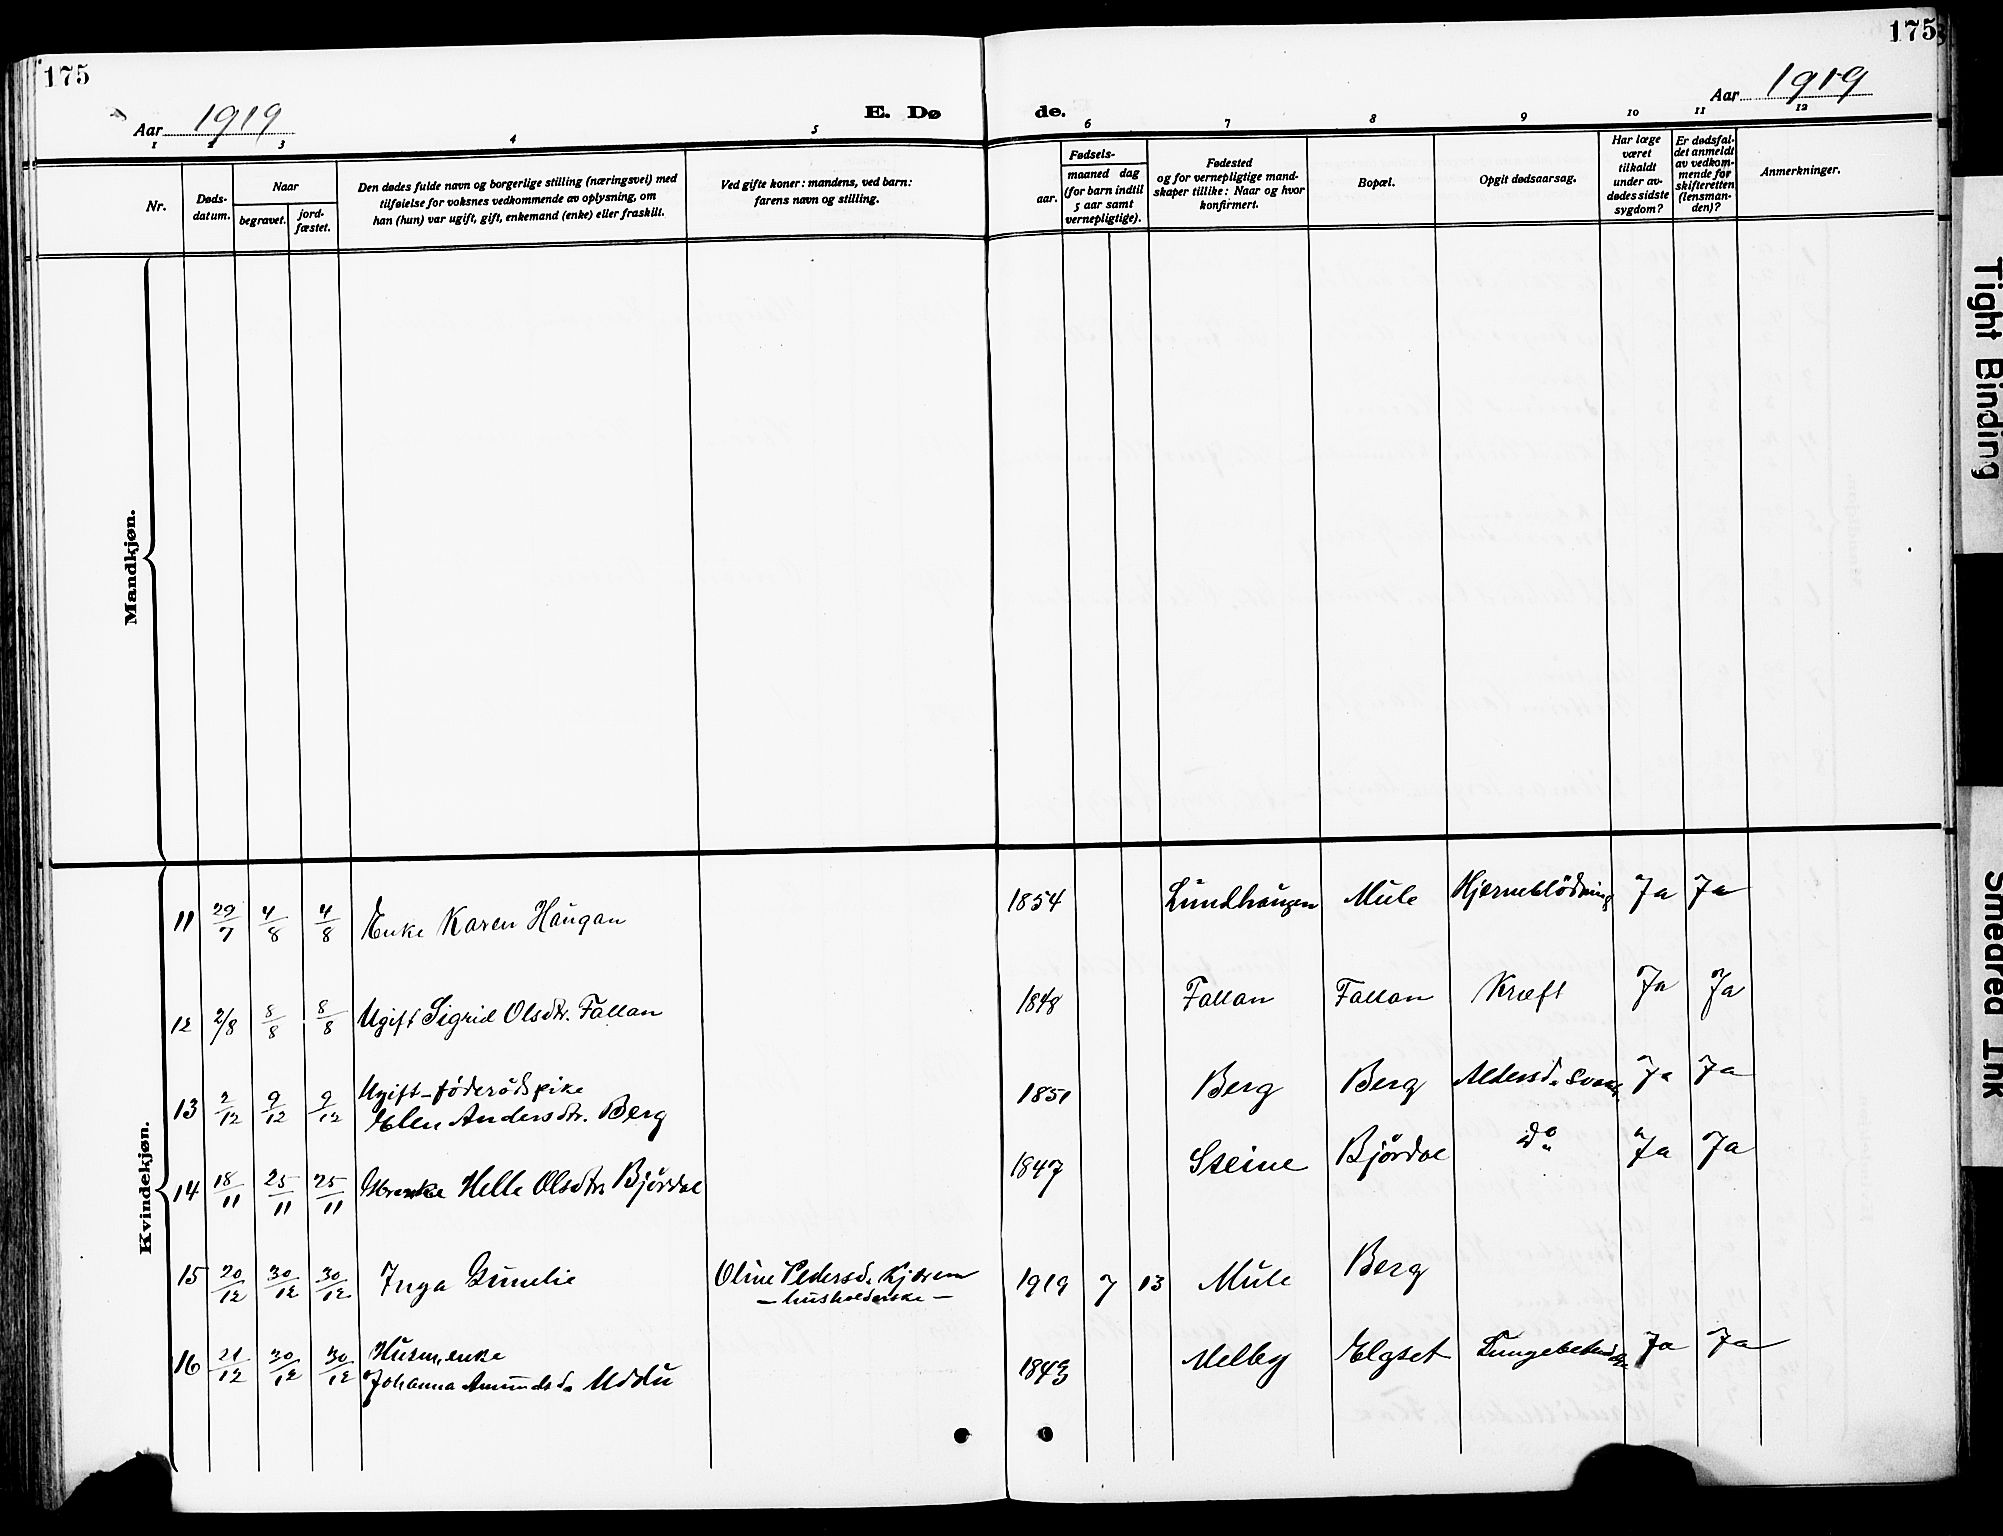 175
Aar 1919
E. Dø
de.
175
Aar 1919
1 2 3 4 5 6 7 8 9 10 11 12
Nr.
Døds-
datum.
Naar
begravet.
jord-
fæstet.
Den dødes fulde navn og borgerlige stilling (næringsvei) med
tilføielse for voksnes vedkommende av oplysning, om
han (hun) var ugift, gift, enkemand (enke) eller fraskilt.
Ved gifte koner: mandens, ved barn:
farens navn og stilling.
Fødsels-
aar.
maaned dag
(for barn indtil
5 aar samt
vernepligtige).
Fødested
og for vernepligtige mand-
skaper tillike: Naar og hvor
konfirmert.
Bopæl.
Opgit dødsaarsag.
Har læge
været
tilkaldt
under av-
dødes sidste
sygdom?
Er dødsfal-
det anmeldt
av vedkom-
mende for
skifteretten
(lensman-
den)?
Anmerkninger.
Mandkjøn.
Kvindekjøn.
11 29/7 4/8 4/8 Enke Karen Haugan 1854 Lundhaugen Mule Hjerneblödning Ja Ja
12 2/8 8/8 8/8 Ugift Sigrid Olsdtr. Fallan 1848 Fallan Fallan Kræft Ja Ja
13 2/12 9/12 9/12 Ugift föderådspike
Elen Andersdtr. Berg 1851 Berg Berg Aldersd. svak Ja Ja
14 18/11 25/11 25/11 Helle Olsdtr Bjørdal 1847 Steine Björdal do Ja Ja
15 20/12 30/12 30/12 Inga Gunelie Oline Pedersd. Kjæren
— husholderske — 1919 7 13 Mule Berg
16 21/12 30/12 30/12 Husm.enke
Johanna Amundsd. 1843 Melby Elgset Ja Ja
Tight Binding
Smeared Ink